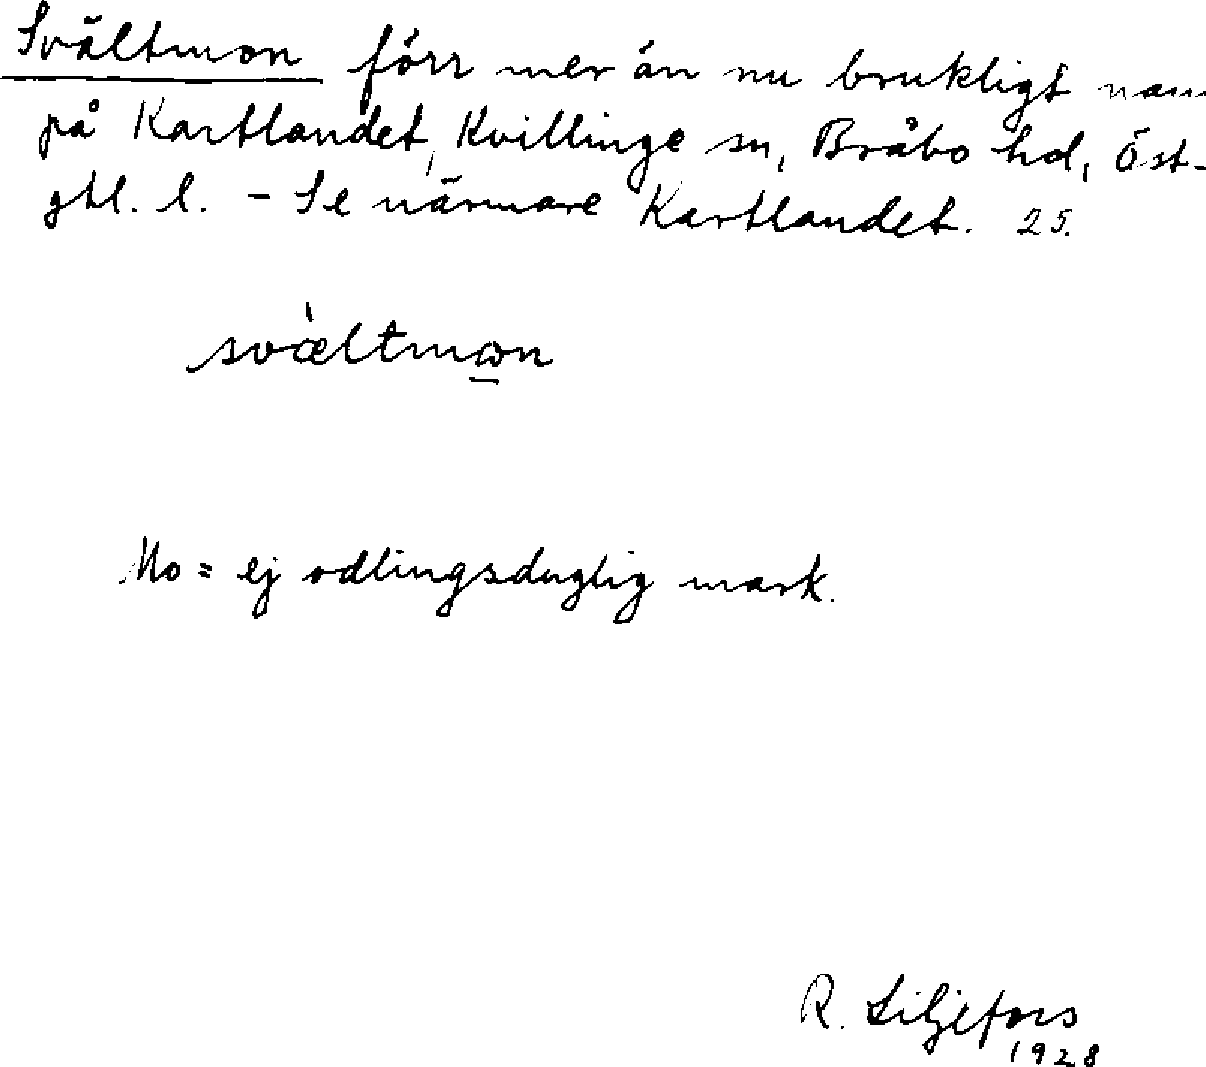 Svältmon förr mer än nu brukligt nam
på Kartlandet, Kvillinge sn, Bråbo hd, Öst-
gtl. l. - Se närmare Kartlandet. 25.
svæ̀ltmɷn
Mo = ej odlingsduglig mark.
R. Liljefors
1928